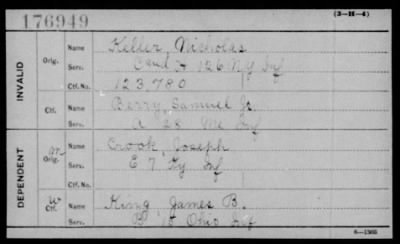 176949
(3-H-4)
INVALID
Orig.
Name
Keller, Nicholas
Serv.
Cand H 126 N.Y. Inf
Ctf. No.
123,780
Ctf.
Name
Berry, Samuel Jr.
Serv.
A 28 Me Inf
DEPENDENT
m
Orig.
Name
Crook, Joseph
Serv.
E 7 Ky Inf
Ctf. No.
W
Ctf.
Name
King, James B.
Serv.
Ohio Inf
6-1568